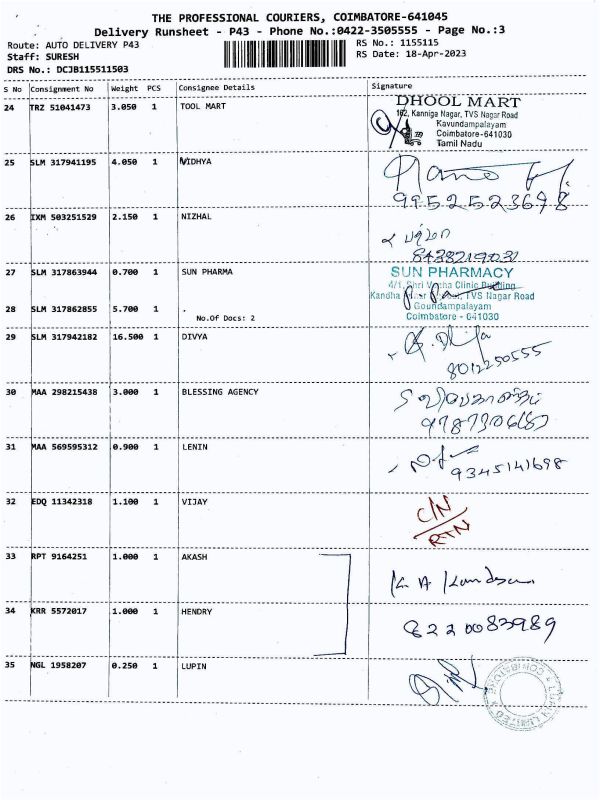 THE PROFESSIONAL COURIERS, COIMBATORE-641045
Delivery Runsheet - P43 - Phone No.:0422-3505555 - Page No.:3
Route: AUTO DELIVERY P43 RS No.: 1155115
Staff: SURESH RS Date: 18-Apr-2023
DRS No.: DCJB115511503
S No Consignment No Weight PCS Consignee Details Signature
24 TRZ 51041473 3.050 1 TOOL MART
DHOOL MART
162, Kanniga Nagar, TVS Nagar Road
Kavundampalayam
Coimbatore-641030
Tamil Nadu
25 SLM 317941195 4.050 1 VIDHYA
9952523698
26 IXM 503251529 2.150 1 NIZHAL
27 SLM 317863944 0.700 1 SUN PHARMA
SUN PHARMACY
Clinic Building
TVS Nagar Road
Goundampalayam
Coimbatore - 641030
28 SLM 317862855 5.700 1 .
No.Of Docs: 2
29 SLM 317942182 16.500 1 DIVYA
8012250555
30 MAA 298215438 3.000 1 BLESSING AGENCY
31 MAA 569595312 0.900 1 LENIN
9345141698
32 EDQ 11342318 1.100 1 VIJAY
C/N
RTN
33 RPT 9164251 1.000 1 AKASH
34 KRR 5572017 1.000 1 HENDRY
8220083989
35 NGL 1958207 0.250 1 LUPIN